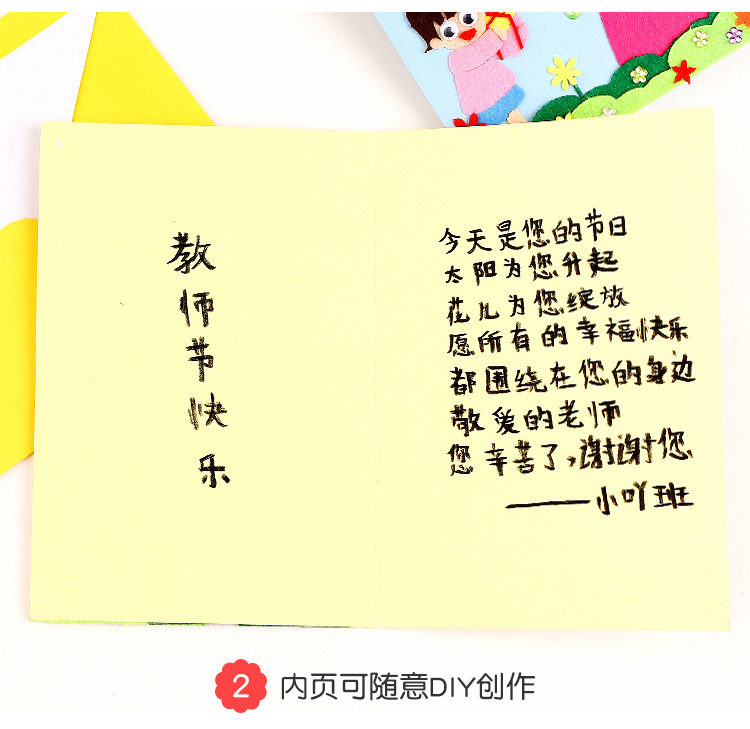 教师节快乐
今天是您的节日
太阳为您升起
花儿为您绽放
愿所有的幸福快乐
都围绕在您的身边
敬爱的老师
您辛苦了,谢谢您
——小吖班
2 内页可随意DIY创作